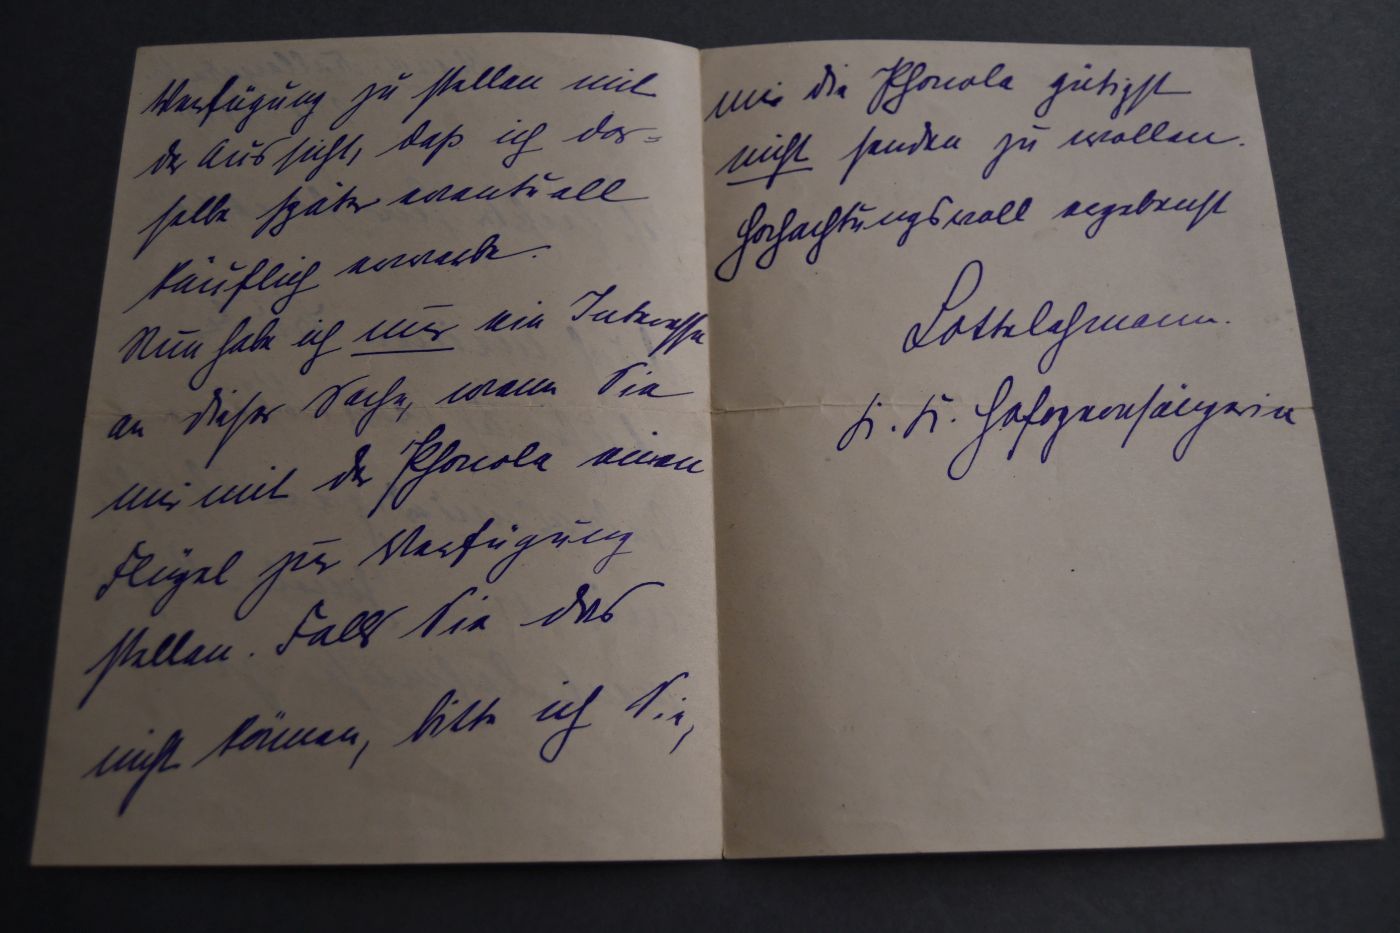 Verfügung zu stellen mit
der Aussicht, daß ich das=
selbe später eventuell
käuflich erwerbe.
Nun habe ich nur ein Interesse
an dieser Sache, wenn Sie
mir mit der Phonola einen
Flügel zur Verfügung
stellen. Falls Sie das
nicht können, bitte ich Sie,
mir die Phonola gütigst
nicht senden zu wollen.
Hochachtungsvoll ergebenst
Lotte Lehmann.
k. k. Hofopernsängerin